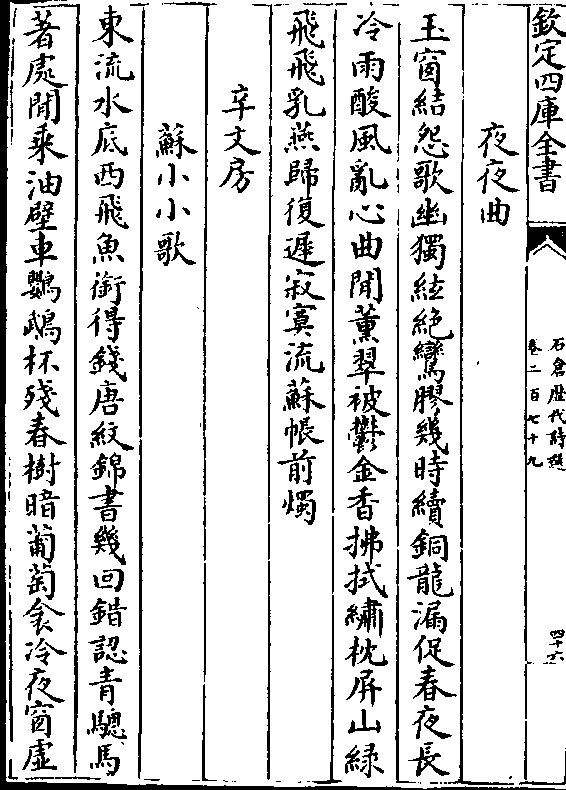 欽定四庫全書
石倉歴代詩選
卷二百七十九
四十六
夜夜曲
玉窗結怨歌幽獨絃絶鸞膠幾時續銅龍漏促春夜長
冷雨酸風亂心曲閒薰翠被鬱金香拂拭繡枕屏山緑
飛飛乳燕歸復遲寂寞流蘇帳前燭
辛文房
蘇小小歌
東流水底西飛魚銜得錢唐紋錦書幾回錯認青驄馬
著處閒乘油壁車鸚鵡杯殘春樹暗葡萄衾冷夜窗虛